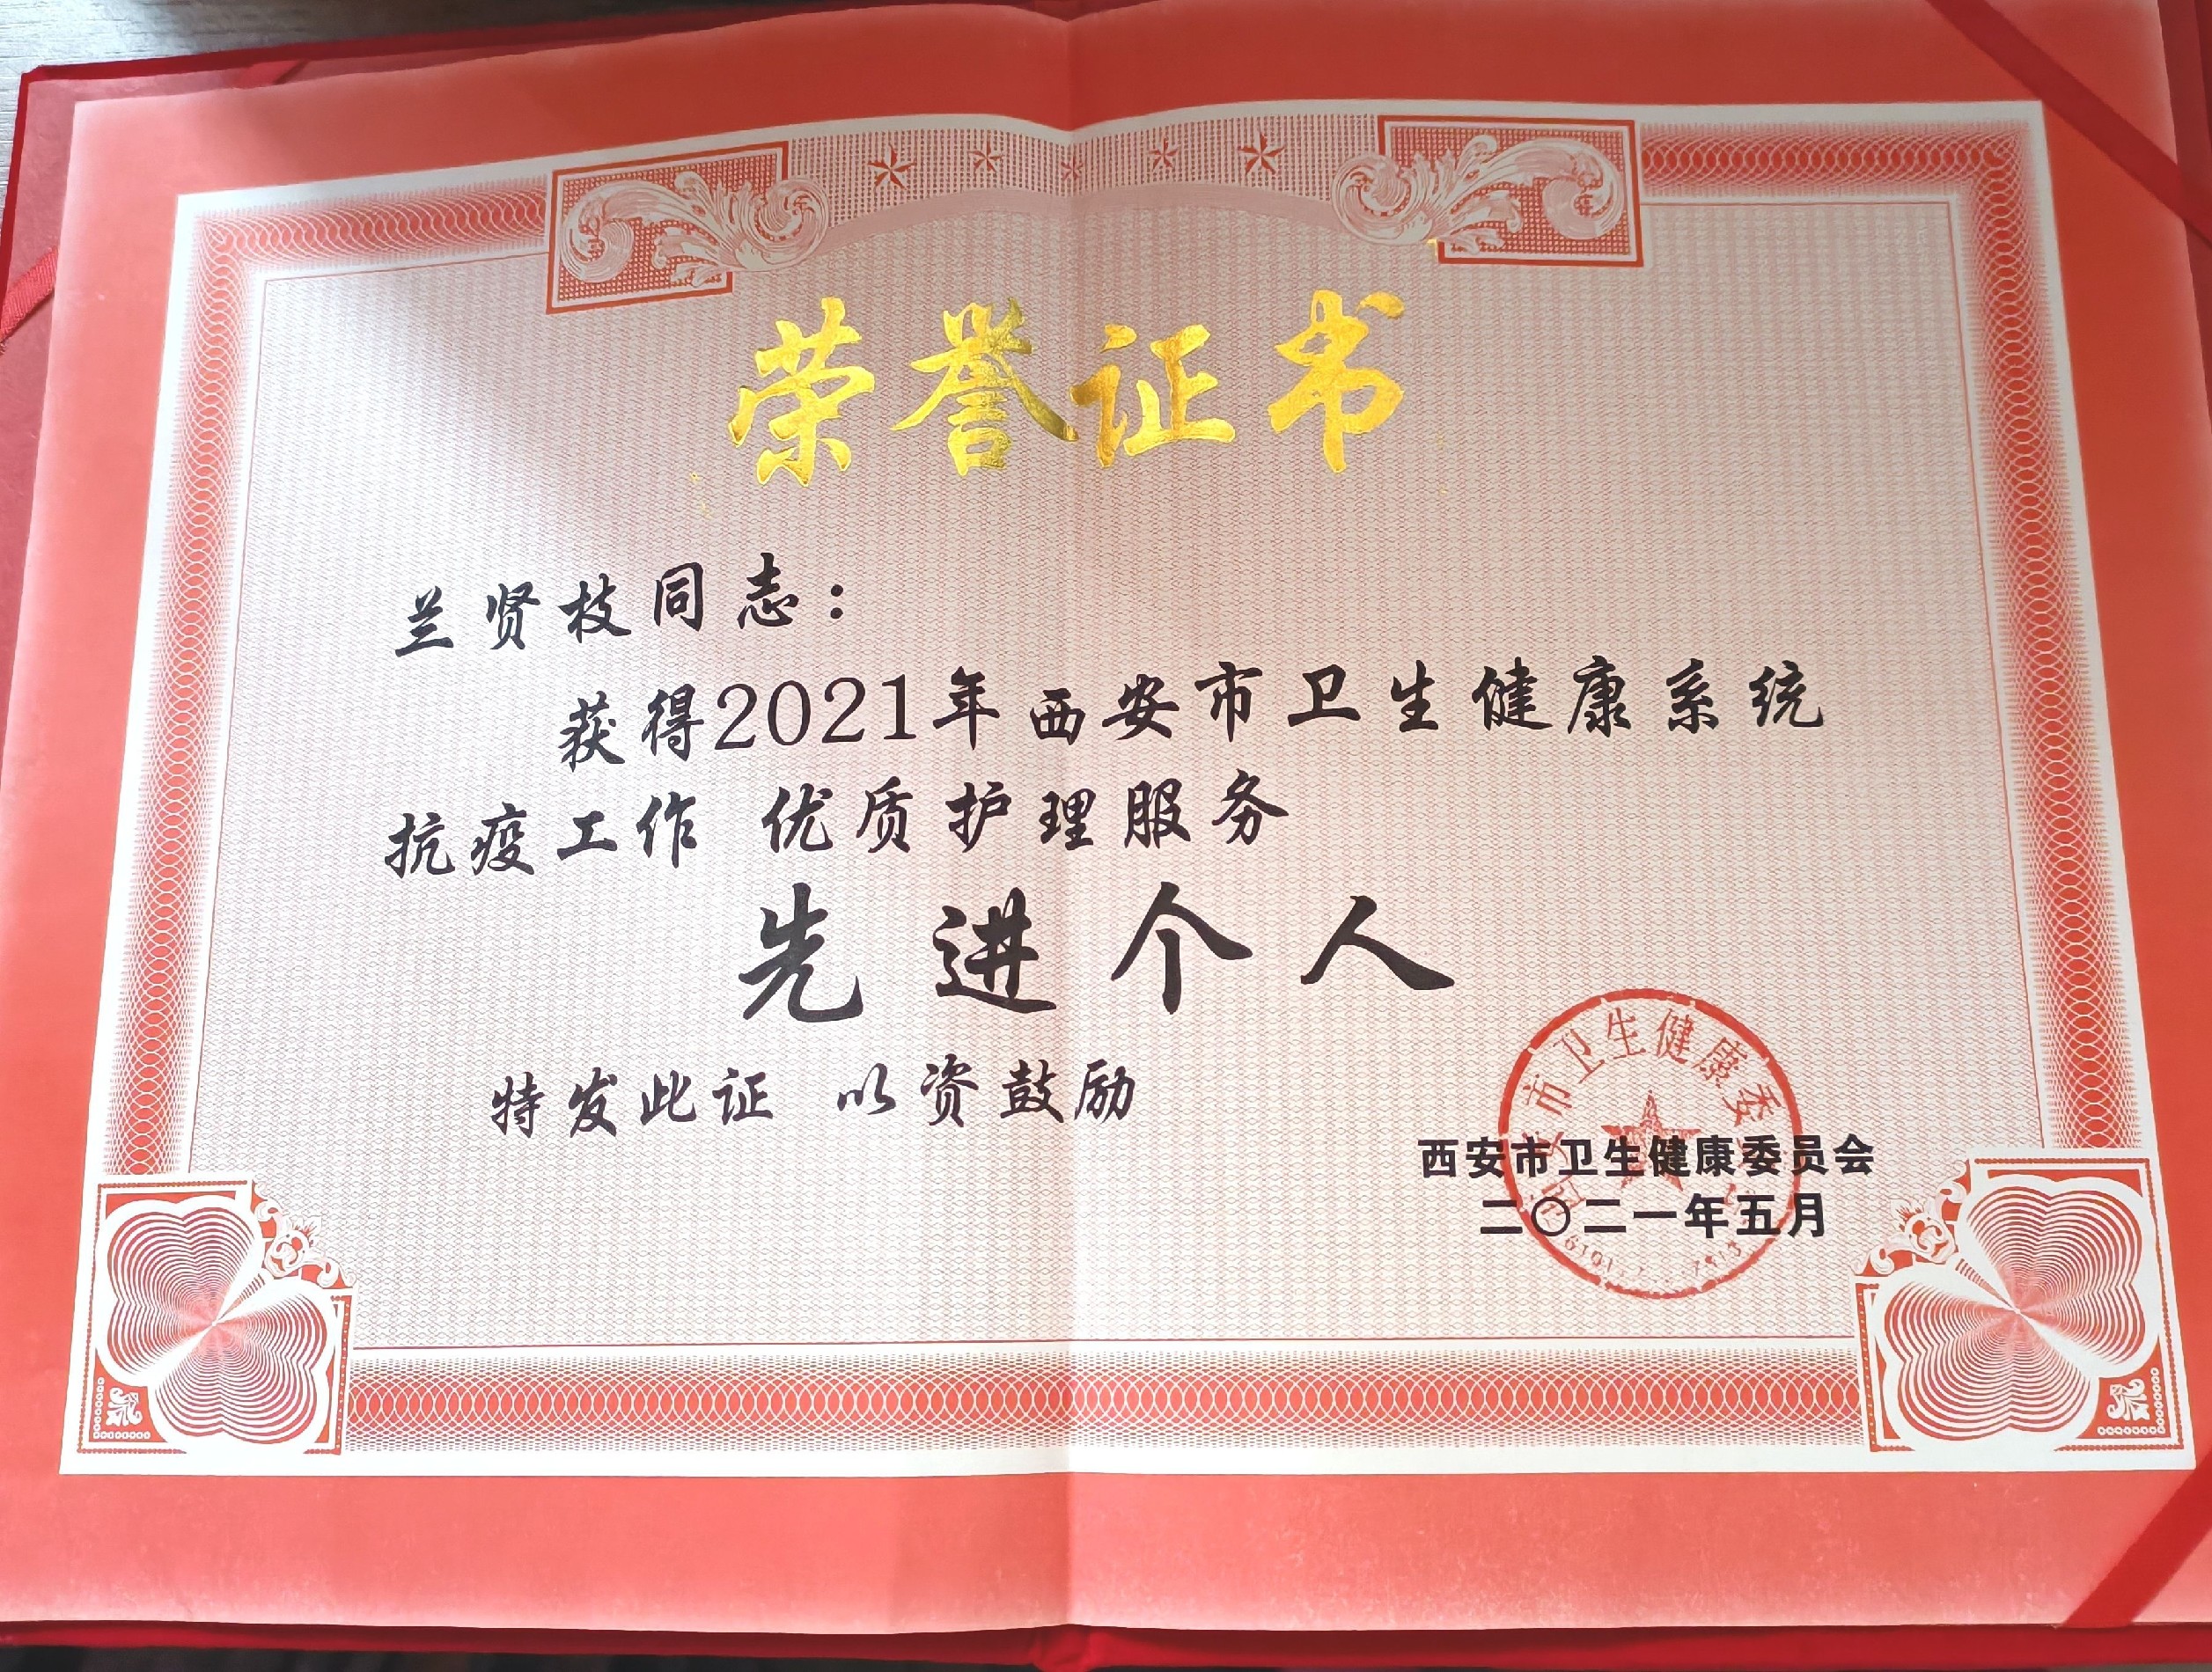 荣誉证书
兰贤枝同志：
获得2021年西安市卫生健康系统
抗疫工作 优质护理服务
先进个人
特发此证 以资鼓励
西安市卫生健康委员会
二〇二一年五月
市卫生健康委